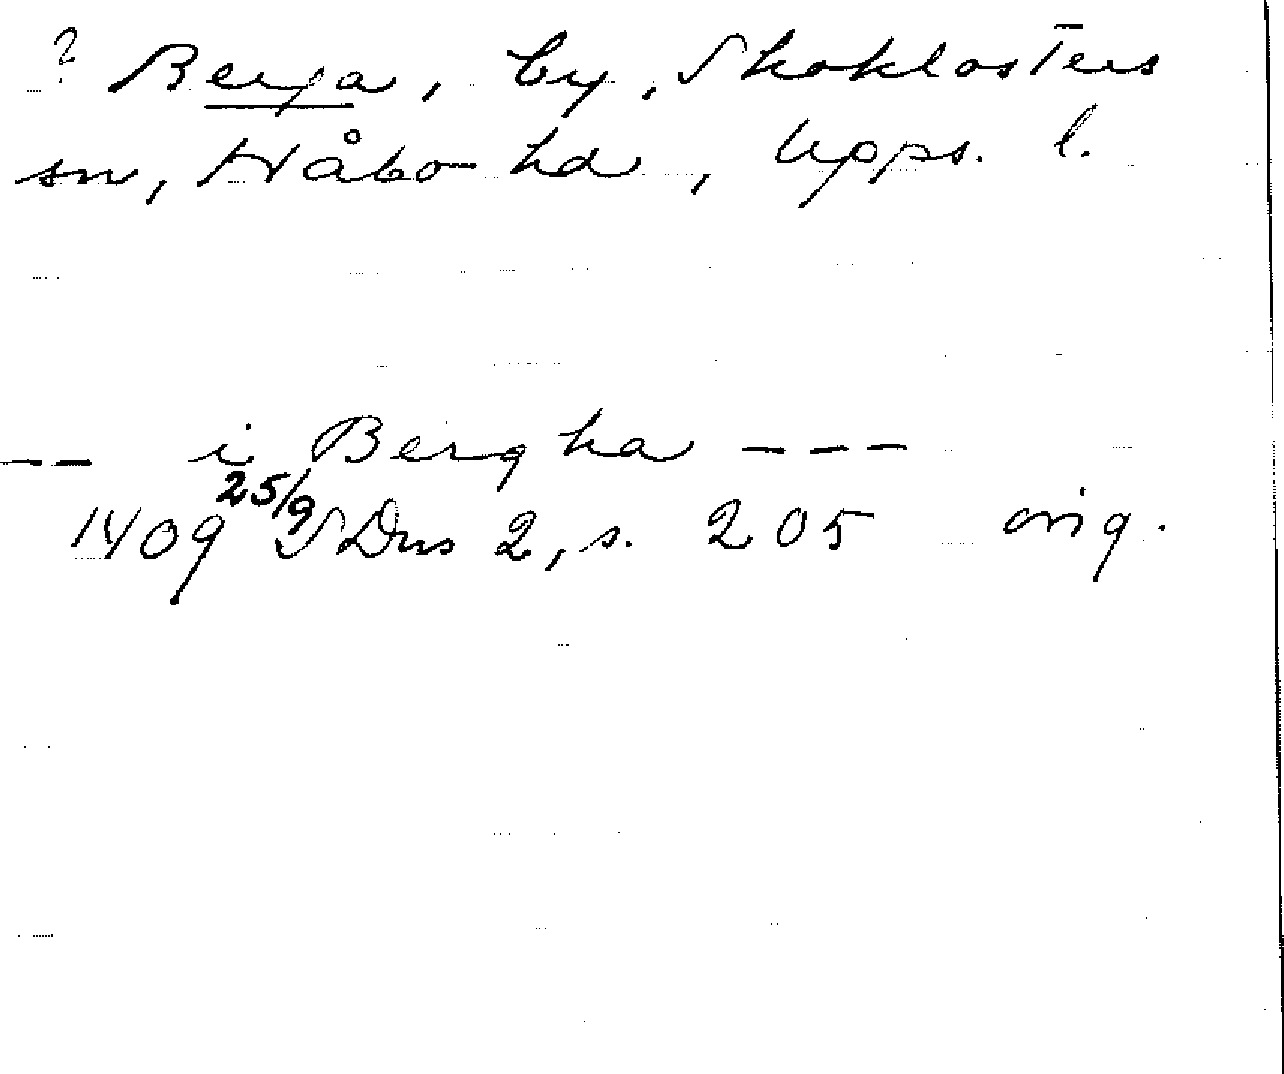 ? Berga, by, Skoklosters
sn, Håbo hd, Upps. l.
-- i Bergha ---
1409 25/9 SDns 2, s. 205 orig.